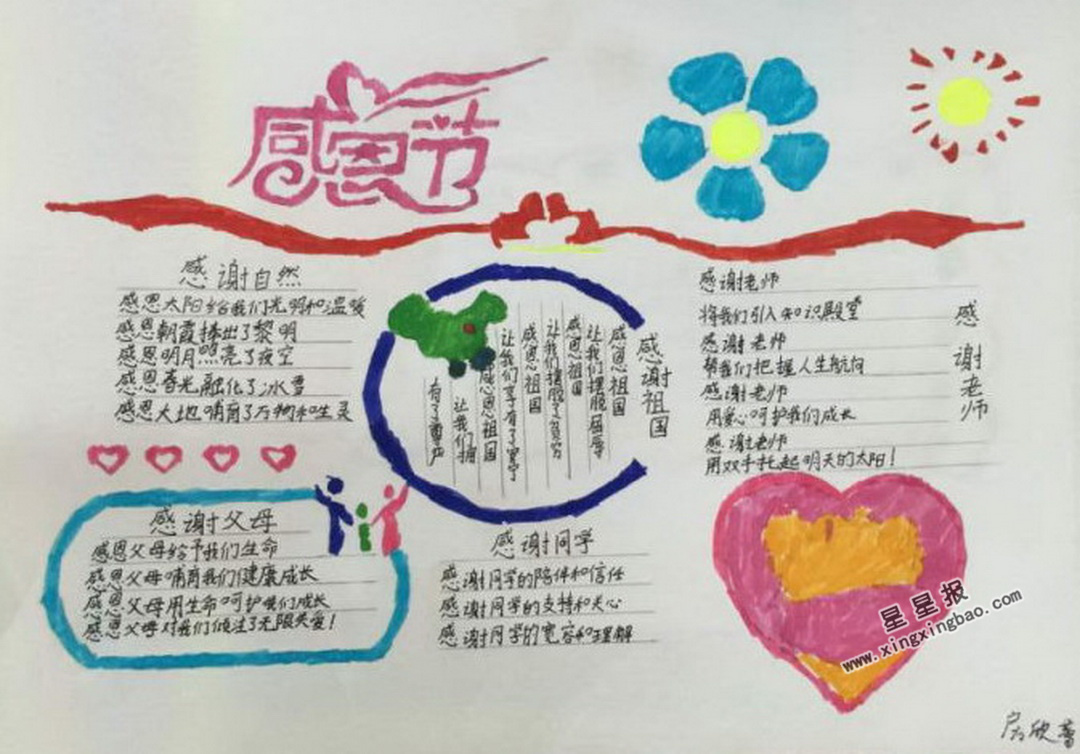 感恩节
感谢自然
感恩太阳给我们光明和温暖
感恩朝霞捧出了黎明
感恩明月照亮了夜空
感恩春光融化了冰雪
感恩大地哺育了万物和生灵
感谢祖国
感恩祖国
让我们摆脱屈辱
感恩祖国
让我们摆脱了贫穷
感恩祖国
让我们享有了安宁
感恩祖国
让我们拥
有了尊严
感谢老师
感谢老师
将我们引入知识殿堂
感谢老师
帮我们把握人生航向
感谢老师
用爱心呵护我们成长
感谢老师
用双手托起明天的太阳！
感谢父母
感恩父母给予我们生命
感恩父母哺育我们健康成长
感恩父母用生命呵护我们成长
感恩父母对我们倾注了无限关爱！
感谢同学
感谢同学的陪伴和信任
感谢同学的支持和关心
感谢同学的宽容和理解
星星报
www.xingxingbao.com